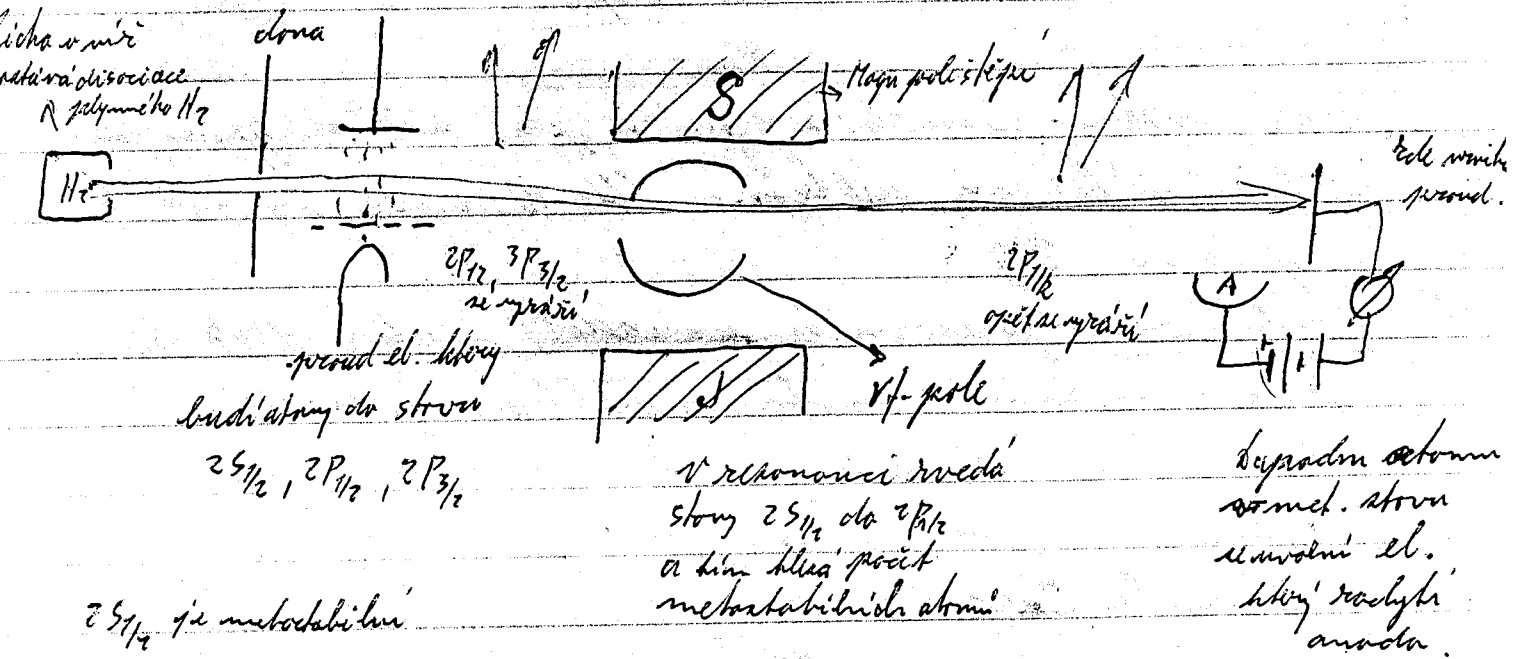 clona
disociace
plynného H₂
H₂
S
Magn pole štěpí
proud.
2P1/2, 3P3/2
se vyzáří
2P1/2
opět se vyzáří
A
proud el. který
budí atomy do stavu
2S1/2, 2P1/2, 2P3/2
Vf-pole
J
V rezonanci
stavy 2S1/2 do 2P1/2
a tím klesá počet
metastabilních atomů
atomu
met. stavu
se uvolní el.
který zachytí
anoda.
2S1/2 je metastabilní